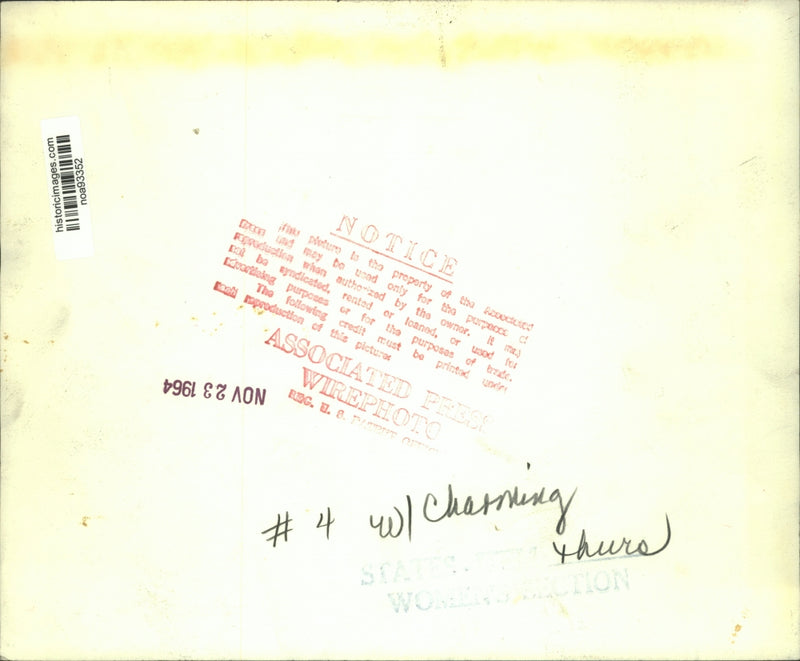 historicimages.com
noa93352
NOTICE
This picture is the property of the Associated
and may be used only for the purposes of
reproduction when authorized by the owner. It may
not be syndicated, rented or loaned, or used for
advertising purposes or for the purposes of trade.
The following credit must be printed under
each reproduction of this picture:
ASSOCIATED PRESS
WIREPHOTO
REG. U. S. PATENT OFFICE
NOV 23 1964
# 4 w/ Charming
thurs
STATES-ITEM
WOMEN'S SECTION